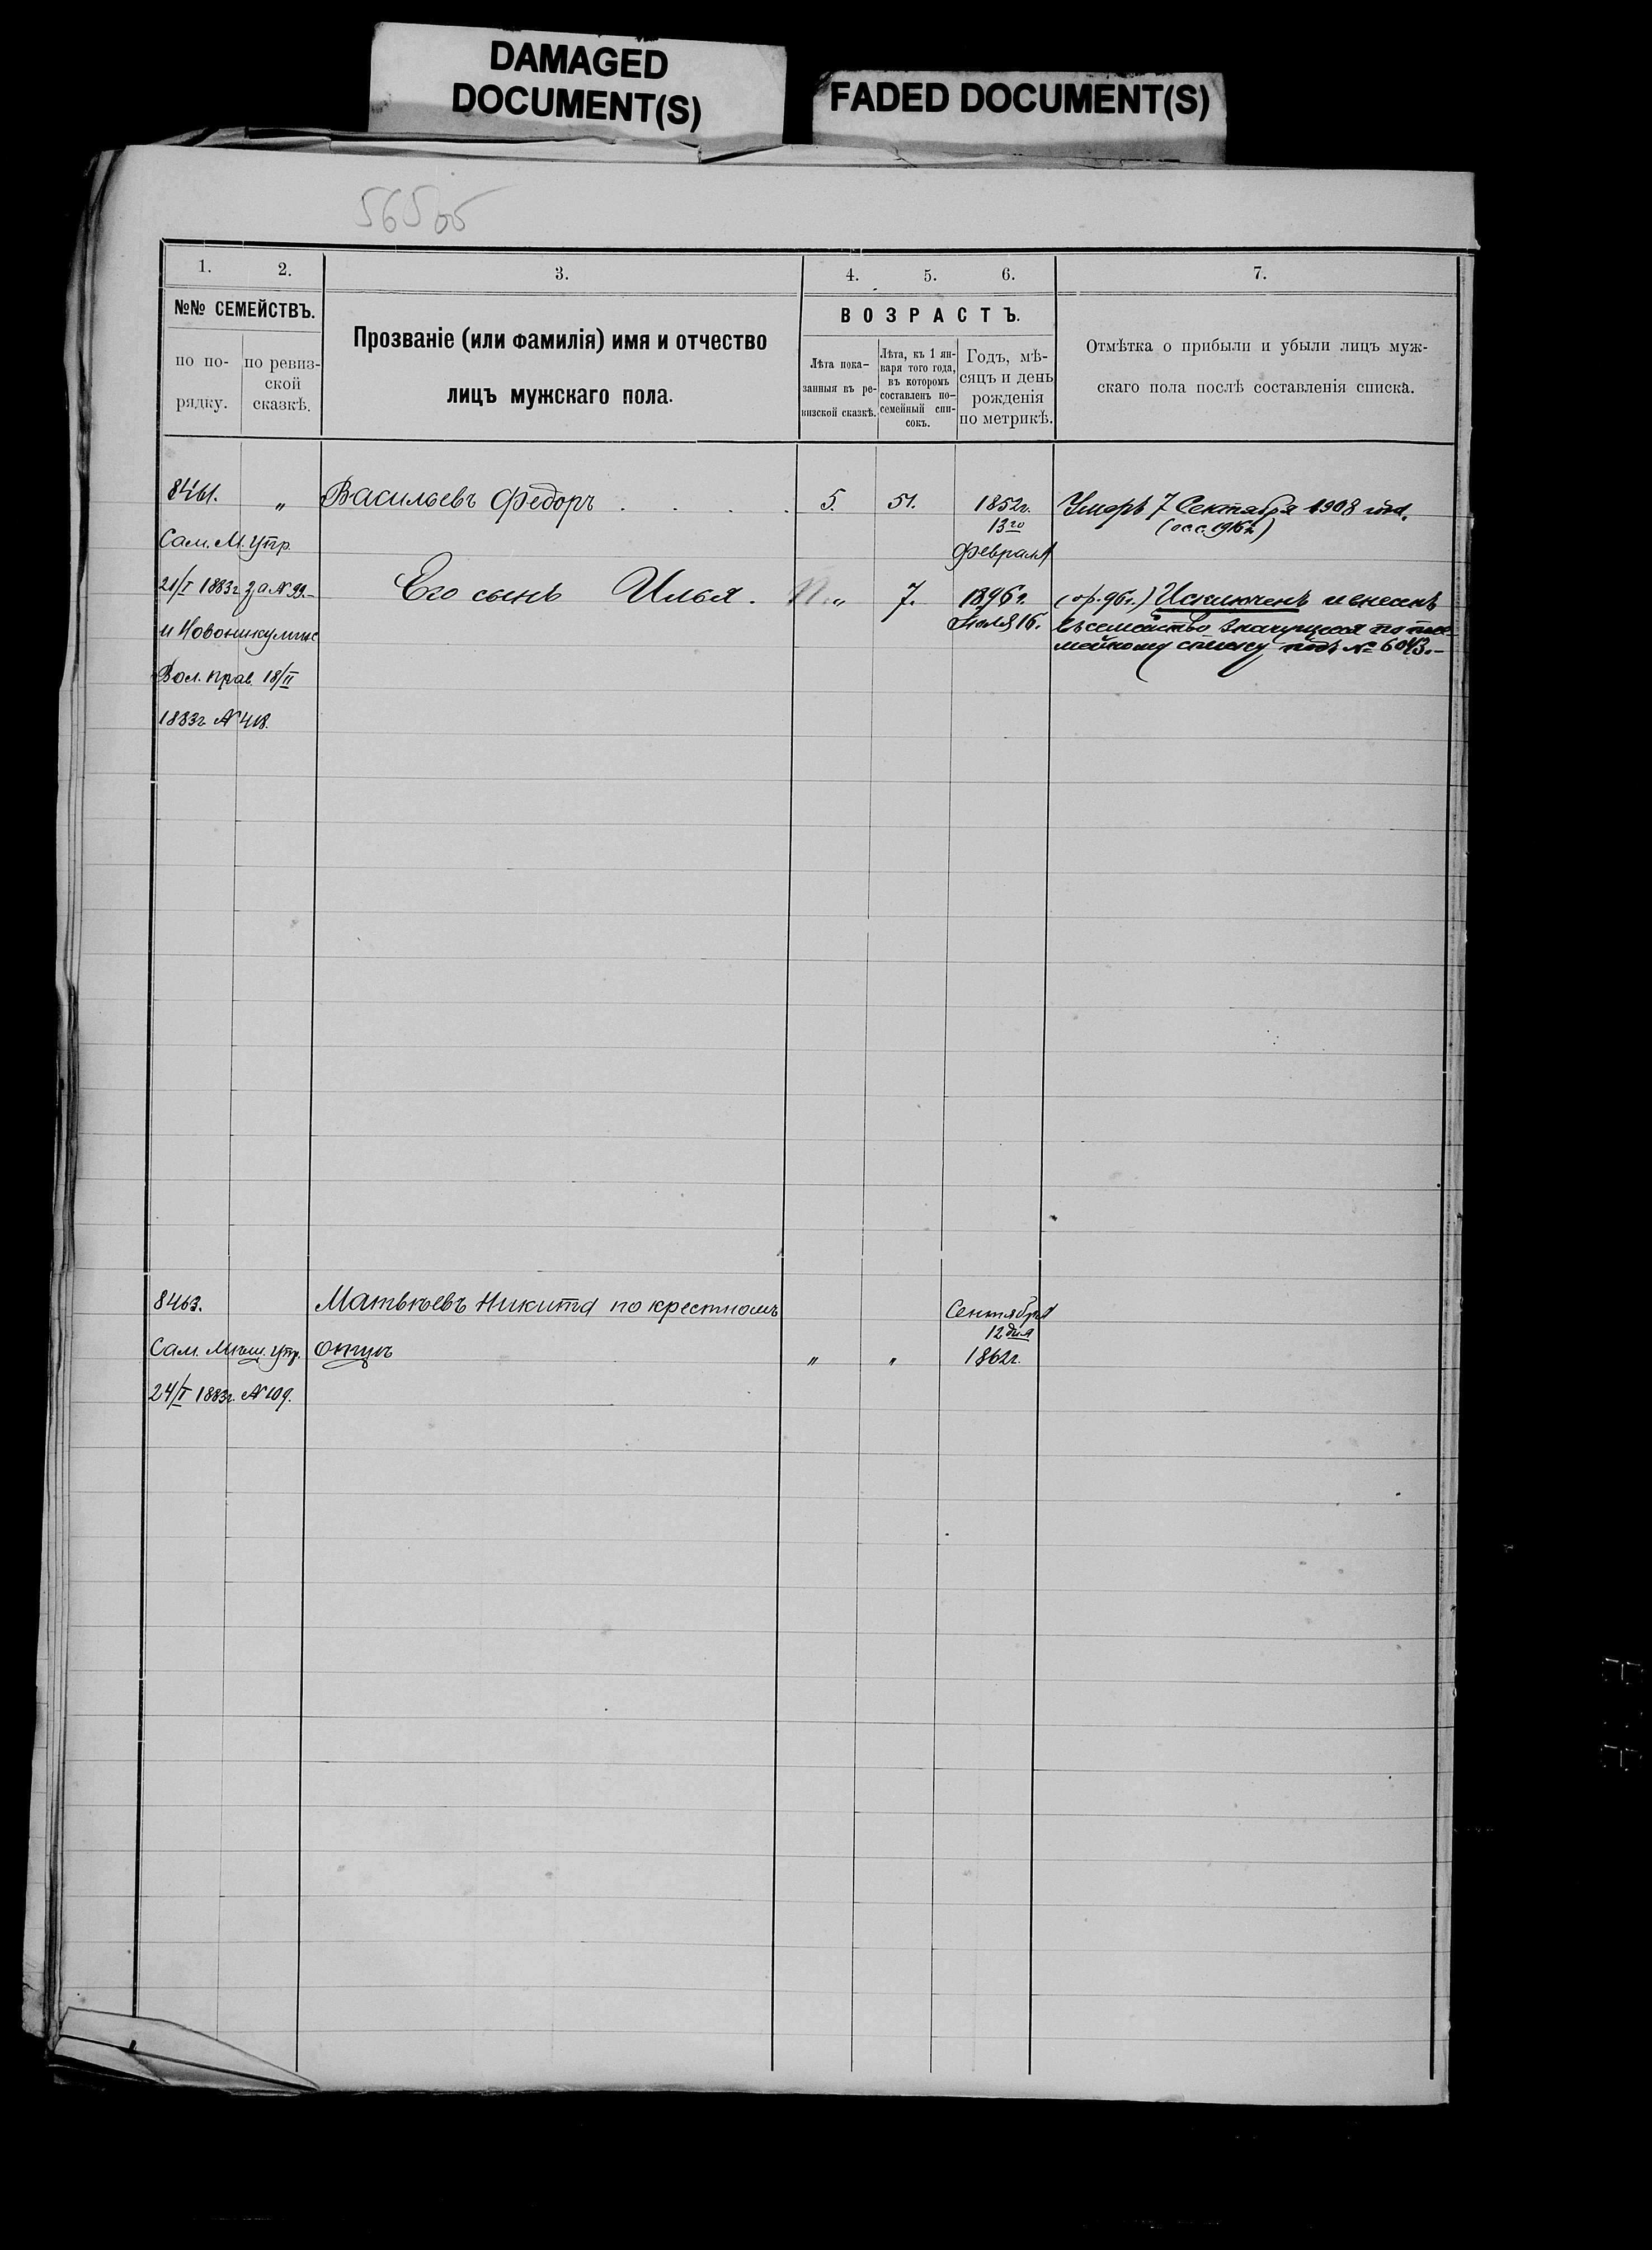 DAMAGED
DOCUMENT(S)
FADED DOCUMENT(S)
56505
1. 2. 3. 4. 5. 6. 7.
№№ СЕМЕЙСТВЪ.
по по-
рядку.
по ревиз-
ской
сказкѣ.
Прозваніе (или фамилія) имя и отчество
лицъ мужскаго пола.
ВОЗРАСТЪ.
Лѣта пока-
занныя въ ре-
визской сказкѣ.
Лѣта, къ 1 ян-
варя того года,
въ которомъ
составленъ по-
семейный спи-
сокъ.
Годъ, мѣ-
сяцъ и день
рожденія
по метрикѣ.
Отмѣтка о прибыли и убыли лицъ муж-
скаго пола послѣ составленія списка.
8461. „ Васильевъ Федоръ . . . . 5. 51. 1852г. Умеръ 7 Сентября 1908 года.
13го
Сам. М. Упр. Февраля
21/I 1883г за № 99.- Его сынъ Илья. „ 7. 1896г. Исключенъ и внесенъ
Іюля 16. въ семейство значущееся по посе-
мейному списку подъ № 6043.-
Вол. прав. 18/II
1883г. № 418.
8463. Матвѣевъ Никита по крестномъ Сентября
12 дня
Сам. Мѣщ. Упр. отцѣ „ „ 1862г.
24/I 1883г. № 109.